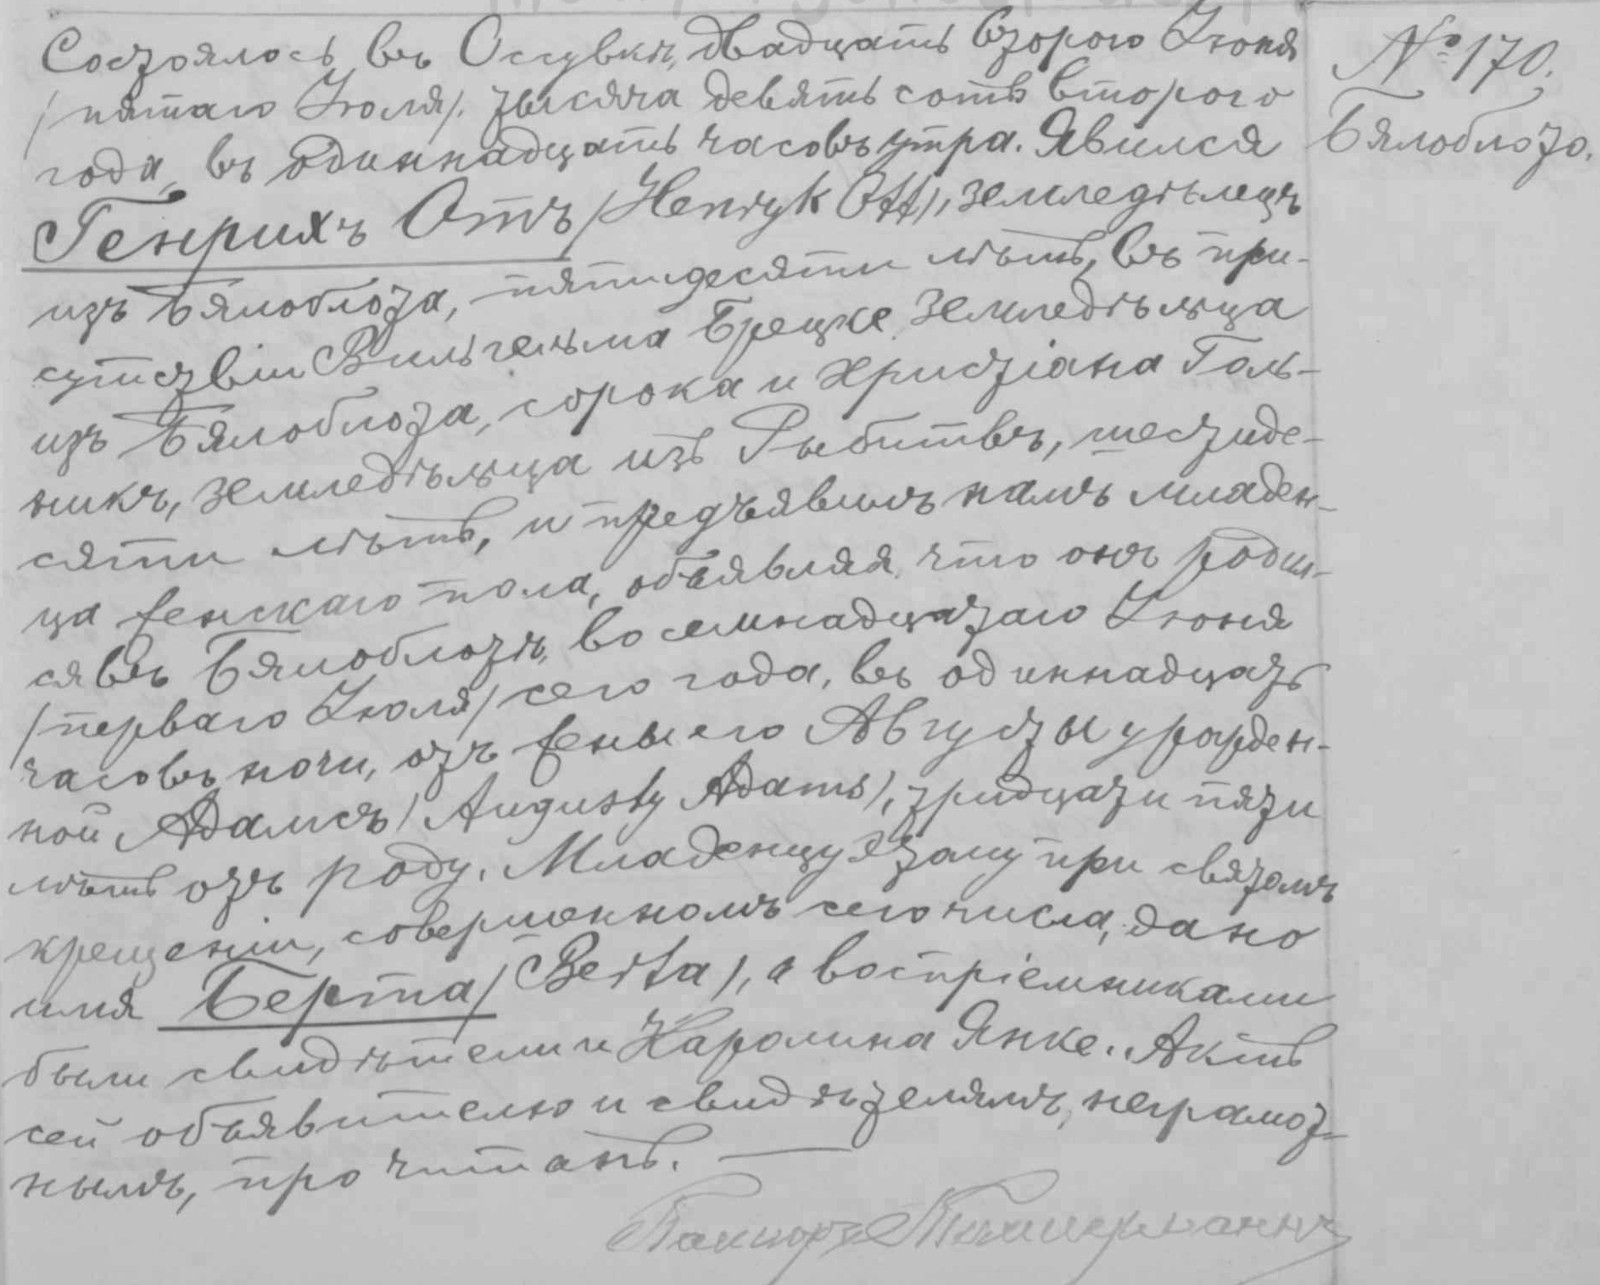 № 170.
Бялоблозо.
Состоялось въ Оссувкѣ, двадцать второго Іюня
/пятаго Іюля/. тысяча девять сотъ второго
года, въ одиннадцать часовъ утра. Явился
Генрихъ Отъ /Henryk Ott/, земледѣлецъ
изъ Бялоблоза, пятидесяти лѣтъ, въ при-
сутствіи Вильгельма Брецке, земледѣльца
изъ Бялоблоза, сорока и Христіана Голь-
никъ, земледѣльца изъ Рыбитвъ, шестиде-
сяти лѣтъ, и предъявилъ намъ младен-
ца женскаго пола, объявляя, что онъ родил-
ся въ Бялоблозѣ, восемнадцатаго Іюня
/перваго Іюля/ сего года, въ одиннадцать
часовъ ночи, отъ жены его Августы урожден-
ной Адамсъ /Augusty Adams/, тридцати пяти
лѣтъ отъ роду. Младенцу этому при святомъ
крещеніи, совершенномъ сего числа, дано
имя Берта /Berta/, а воспріемниками
были свидѣтели и Каролина Янке. Актъ
сей объявителю и свидѣтелямъ, неграмот-
нымъ, прочитанъ. —
Пасторъ